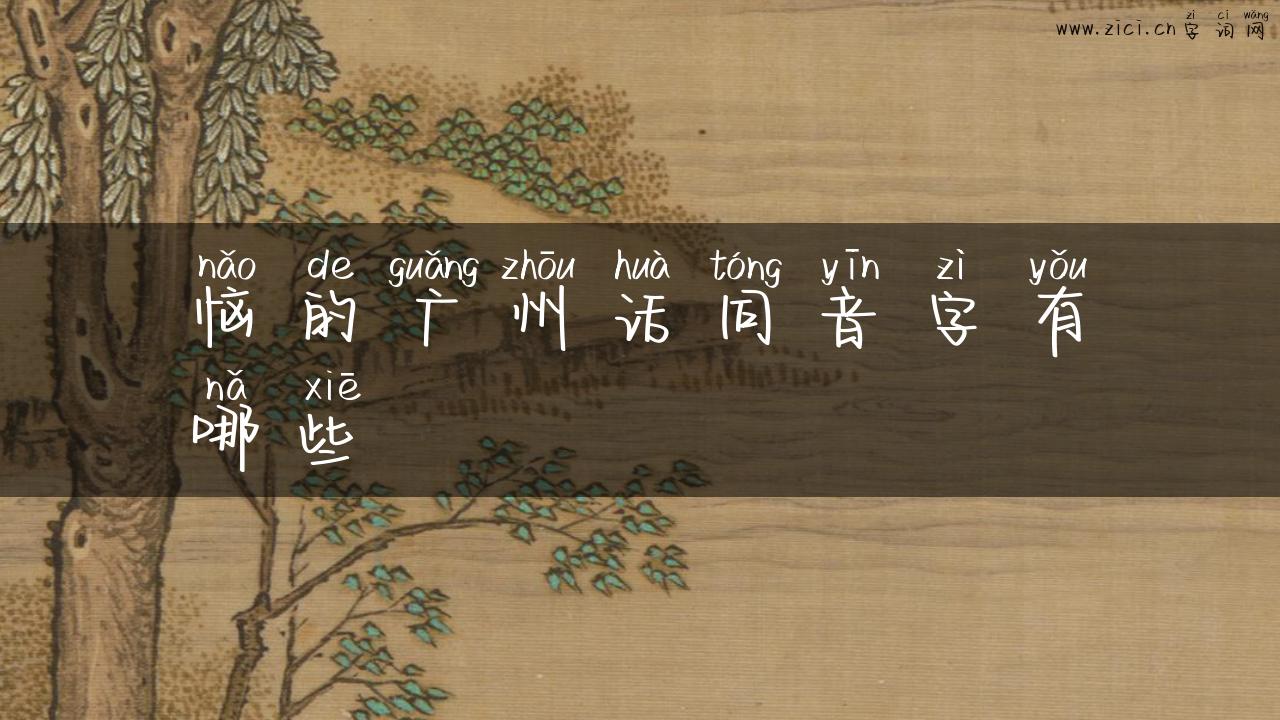 zì cí wǎng
www.zici.cn 字词网
nǎo de guǎng zhōu huà tóng yīn zì yǒu
恼的广州话同音字有
nǎ xiē
哪些